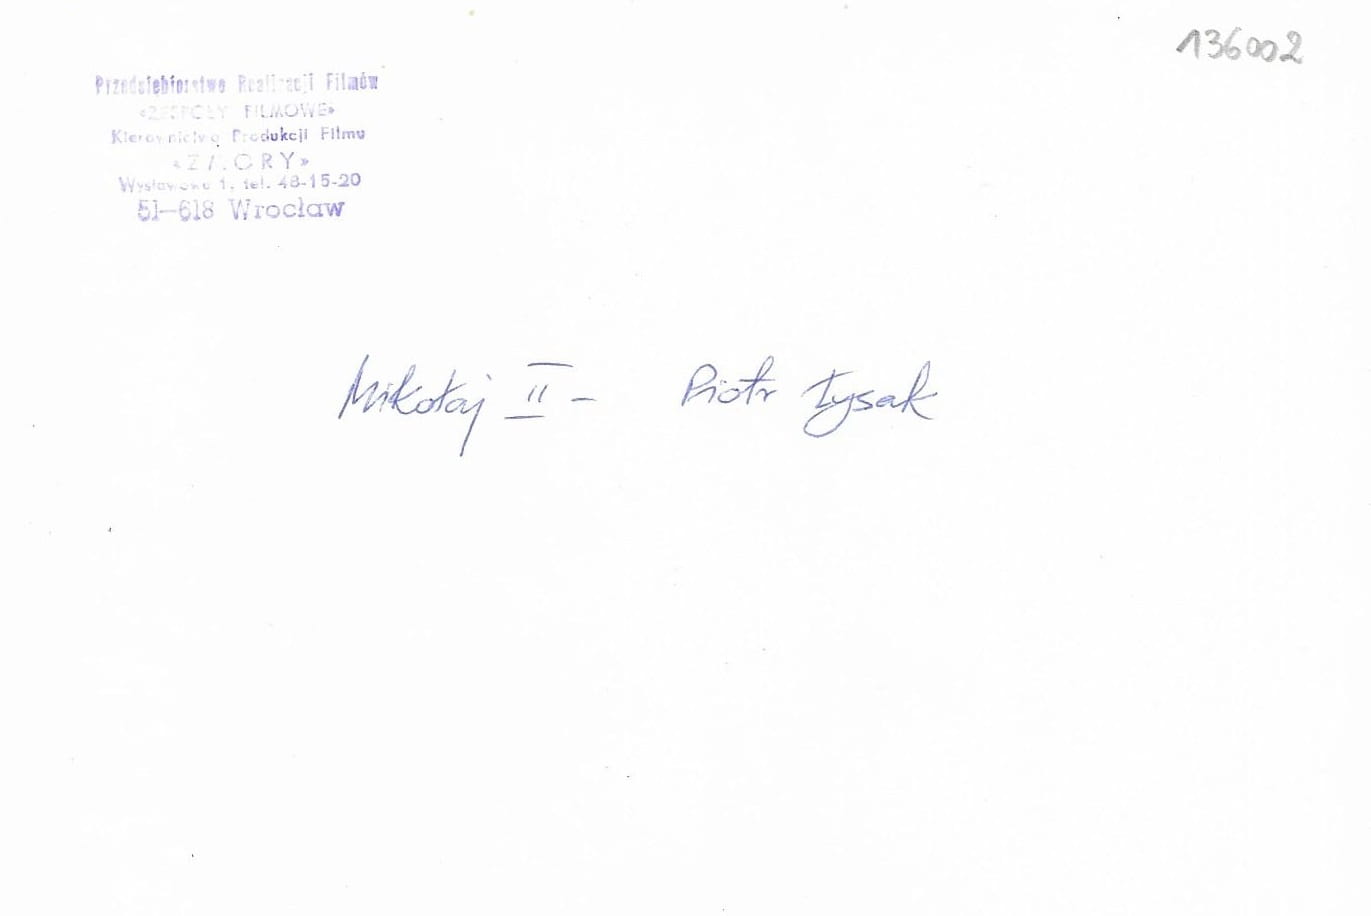 136002
Przedsiębiorstwo Realizacji Filmów
«ZESPOŁY FILMOWE»
Kierownictwo Produkcji Filmu
Wystawowa 1, tel. 48-15-20
51-618 Wrocław
Mikołaj II - Piotr Łysak